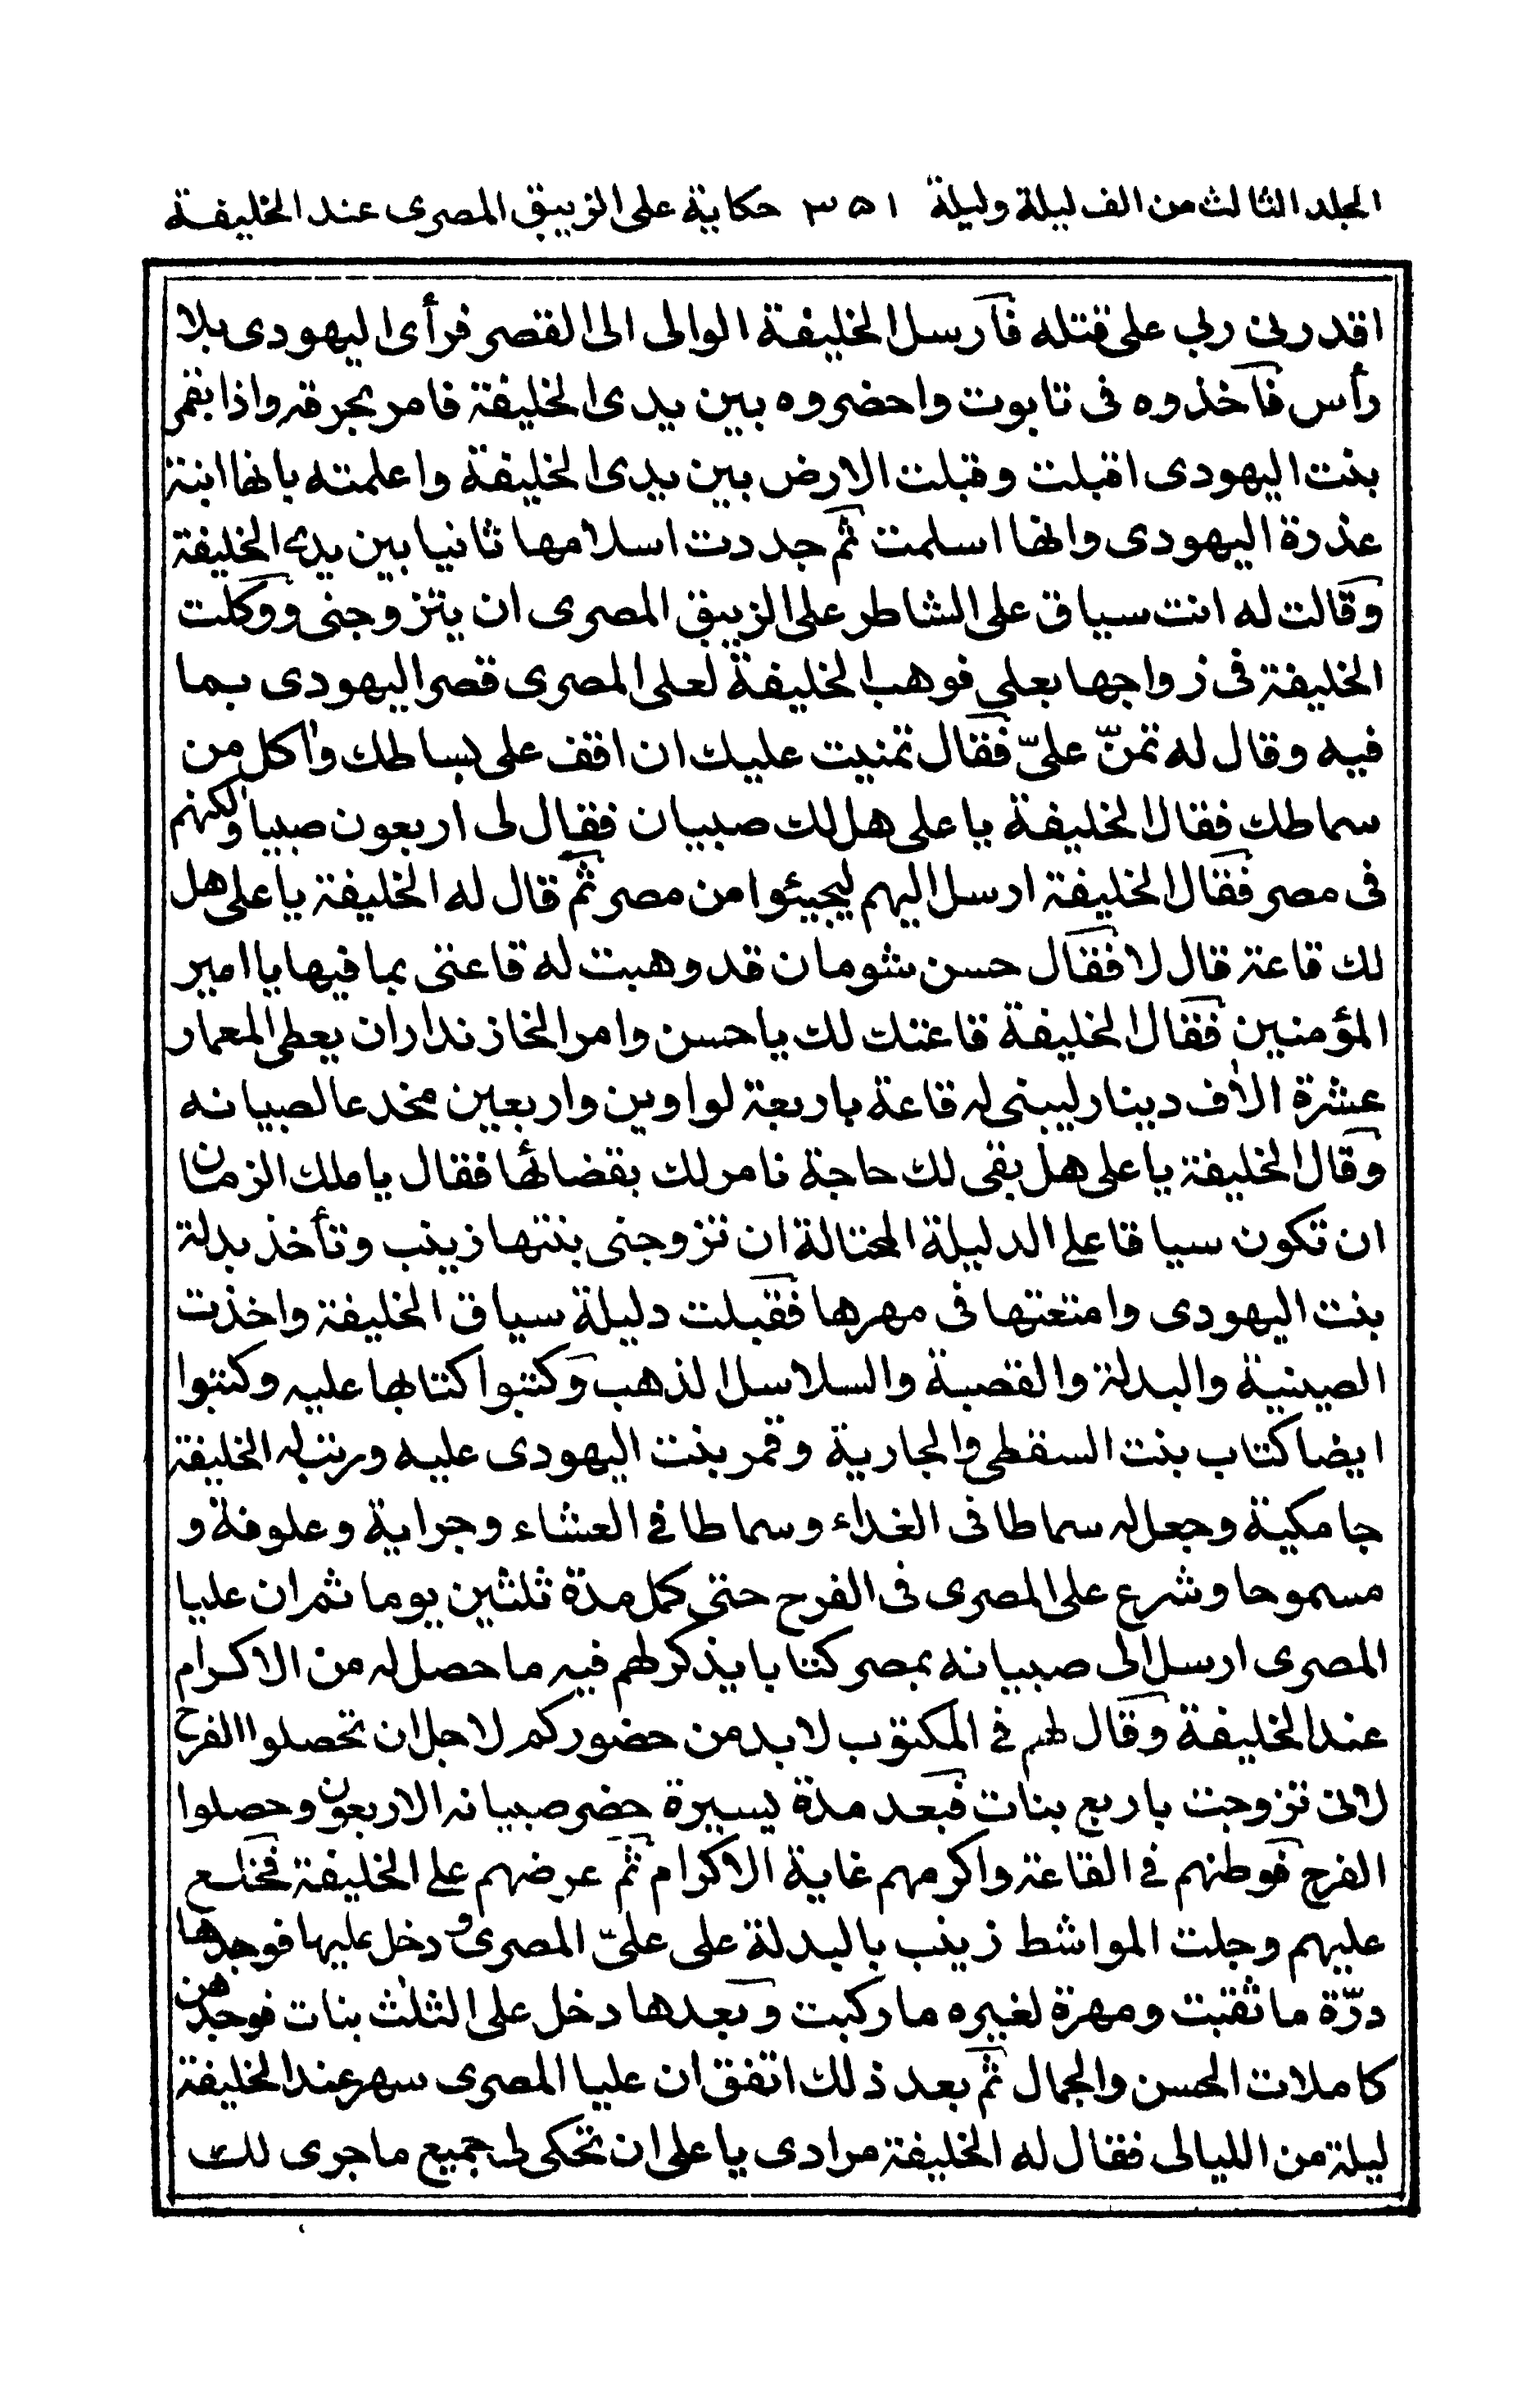 المجلد الثالث من الف ليلة وليلة ٣٥١ حكاية على الزيبق المصرى عند الخليفة
اقدرنى ربى على قتله فارسل الخليفة الوالى الى القصر فرأى اليهودى بلا
رأس فاخذوه فى تابوت واحضروه بين يدى الخليفة فامر بحرقه واذا بقمر
بنت اليهودى اقبلت وقبلت الارض بين يدى الخليفة واعلمته بانها ابنة
عذرة اليهودى وانها اسلمت ثم جددت اسلامها ثانيا بين يدى الخليفة
وقالت له انت سياق على الشاطر على الزيبق المصرى ان يتزوجنى ووكلت
الخليفة فى زواجها بعلى فوهب الخليفة لعلى المصرى قصر اليهودى بما
فيه وقال له تمنّ علىّ فقال تمنيت عليك ان اقف على بساطك واٰكل من
سماطك فقال الخليفة يا على هل لك صبيان فقال لى اربعون صبيا ولكنهم
فى مصر فقال الخليفة ارسل اليهم ليجيئوا من مصر ثم قال له الخليفة يا على هل
لك قاعة قال لا فقال حسن شومان قد وهبت له قاعتى بما فيها يا امير
المؤمنين فقال الخليفة قاعتك لك يا حسن وامر الخازندار ان يعطى المعمار
عشرة الاٰف دينار ليبنى له قاعة باربعة لواوين واربعين مخدعا لصبيانه
وقال الخليفة يا على هل بقى لك حاجة نامر لك بقضائها فقال يا ملك الزمان
ان تكون سياقا على الدليلة المحتالة ان تزوجنى بنتها زينب وتأخذ بدلة
بنت اليهودى وامتعتها فى مهرها فقبلت دليلة سياق الخليفة واخذت
الصينية والبدلة والقصبة والسلاسل الذهب وكتبوا كتابها عليه وكتبوا
ايضا كتاب بنت السقطى والجارية وقمر بنت اليهودى عليه ورتب له الخليفة
جامكية وجعل له سماطا فى الغداء وسماطا فى العشاء وجراية وعلوفة و
مسموحا وشرع على المصرى فى الفرح حتى كمل مدة ثلثين يوما ثم ان عليا
المصرى ارسل الى صبيانه بمصر كتابا يذكر لهم فيه ما حصل له من الاكرام
عند الخليفة وقال لهم فى المكتوب لا بد من حضوركم لاجل ان تحصلوا الفرح
لانى تزوجت باربع بنات فبعد مدة يسيرة حضر صبيانه الاربعون وحصلوا
الفرح فوطنهم فى القاعة واكرمهم غاية الاكرام ثم عرضهم على الخليفة فخلع
عليهم وجلت المواشط زينب بالبدلة على علىّ المصرى ودخل عليها فوجدها
درّة ما ثقبت ومهرة لغيره ما ركبت وبعدها دخل على الثلٰث بنات فوجدهن
كاملات الحسن والجمال ثم بعد ذلك اتفق ان عليا المصرى سهر عند الخليفة
ليلة من الليالى فقال له الخليفة مرادى يا على ان تحكى لى جميع ما جرى لك